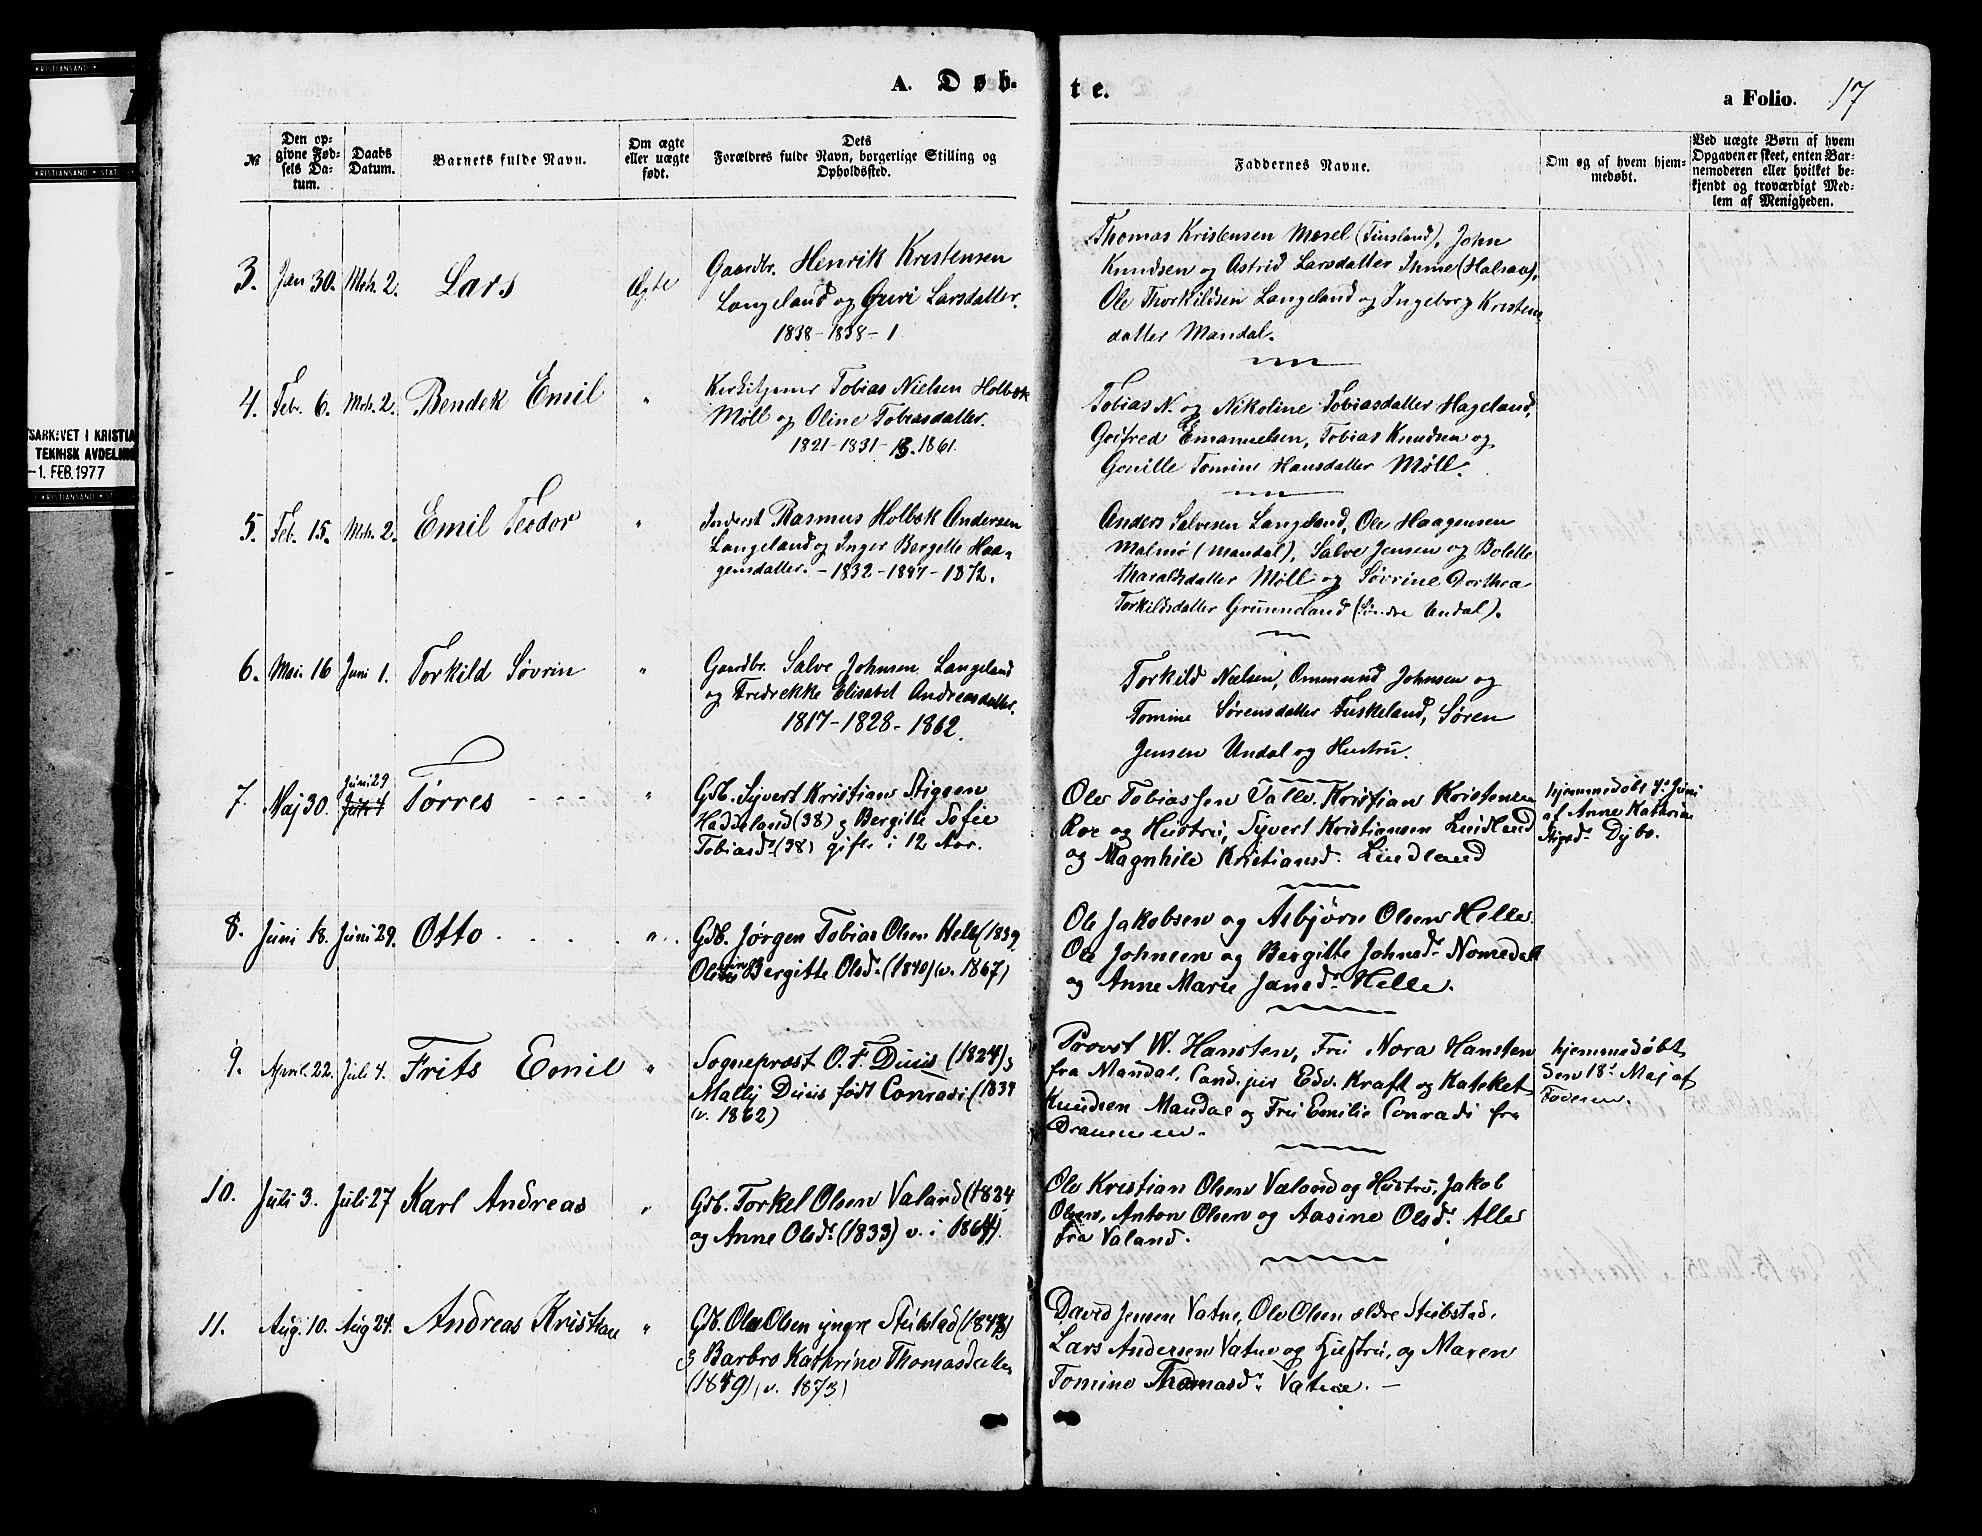 A. Døb-
te.
a Folio. 17
№
Den op-
givne Fød-
sels Da-
tum.
Daabs
Datum.
Barnets fulde Navn.
Om ægte
eller uægte
født.
Dets
Forældres fulde Navn, borgerlige Stilling og
Opholdssted.
Faddernes Navne.
Om og af hvem hjem-
medøbt.
Ved uægte Børn af hvem
Opgaven er skeet, enten Bar-
nemoderen eller hvilket be-
kjendt og troværdigt Med-
lem af Menigheden.
3. Jan 30. Mch. 2. Lars Ægte
Gaardbr. Henrik Kristensen
Langeland og Guri Larsdatter.
1838-1838-1
Thomas Kristensen Mosel (Finsland), John
Knudsen og Astrid Larsdatter Ihme (Halsaa),
Ole Thorkildsen Langeland og Ingeborg Kristens
datter Mandal.
4. Feb. 6. Mch. 2. Bendek Emil "
Tobias Nielsen Holbæk
Møll og Oline Tobiasdatter.
1821-1831-13.1861.
Tobias N. og Nikoline Tobiasdatter Hageland,
Gotfred Emanuelsen, Tobias Knudsen og
Gunille Tomine Hansdatter Møll.
5. Feb. 15. Mch. 2. Emil Teodor "
Inderst Rasmus Holbæk Andersen
Langeland og Inger Bergette Haa-
gensdatter. -1832-1847-1872.
Anders Salvesen Langeland, Ole Haagensen
Malmø (Mandal), Salve Jensen og Bolette
Haraldsdatter Møll og Søvrine Dorthea
Torkildsdatter Grunneland (Søndre Undal).
6. Mai. 16 Juni 1. Torkild Søvrin "
Gaardbr. Salve Johnsen Langeland
og Fredrekke Elisabet Andreasdatter.
1817-1828-1862.
Torkild Nielsen, Ommund Johnsen og
Tomine Sørensdatter Fuskeland, Søren
Jensen Undal og Hustru.
7. Maj 30. Juni 29 Tørres "
Gdb. Syvert Kristian Stigsen
Haddeland (38) & Bergitte Sofie
Tobiasdr (38) gift i 12 Aar.
Ole Tobiassen Valle, Kristian Kristensen
Roe og Hustru, Syvert Kristiansen Lindland
og Magnhild Kristiansd. Lindland
hjemmedøbt 4de Juni
af Anne Kathrine
Stigsdr Dybo.
8. Juni 18. Juni 29. Otto "
Gdb. Jørgen Tobias Olsen Helle (1839
Bergitte Olsdr (1840) (v. 1867)
Ole Jakobsen og Asbjørn Olsen Helle
Ole Johnsen og Bergitte Johnsdr Nomedal
og Anne Marie Jansdr Helle.
9. April. 22. Juli 4. Frits Emil "
Sognepræst O. F. Duus (1824) &
Mally Duus født Conradi (1834
(v. 1862)
Provst W. Hansten, Fru Nora Hansten
fra Mandal, Cand. jur Edv. Kraft og Kateket
Knudsen Mandal og Fru Emilie Conradi fra
Drammen.
hjemmedøbt
den 18de Maj af
Faderen.
10. Juli 3. Juli 27 Karl Andreas "
Gdb. Torkel Olsen Valand (1824
og Anne Olsdr (1833) v. i 1864).
Ole Kristian Olsen Valand og Hustru, Jakob
Olsen, Anton Olsen og Aasine Olsdr Alle
fra Valand.
11. Aug. 10. Aug 24. Andreas Kristian "
Gdb. Ole Olsen yngre Stubstad (1848)
& Barbro Kathrine Thomasdatter
(1849), (v. 1873)
David Jensen Vatne, Ole Olsen ældre Stubstad,
Lars Andersen Vatne og Hustru, og Maren
Tomine Thomasdr Vatne. -
KRISTIANSAND
KRISTIANSAND * STAT
TSARKIVET I KRISTIA
TEKNISK AVDELING
-1. FEB. 1977
KRISTIANSAND * ST